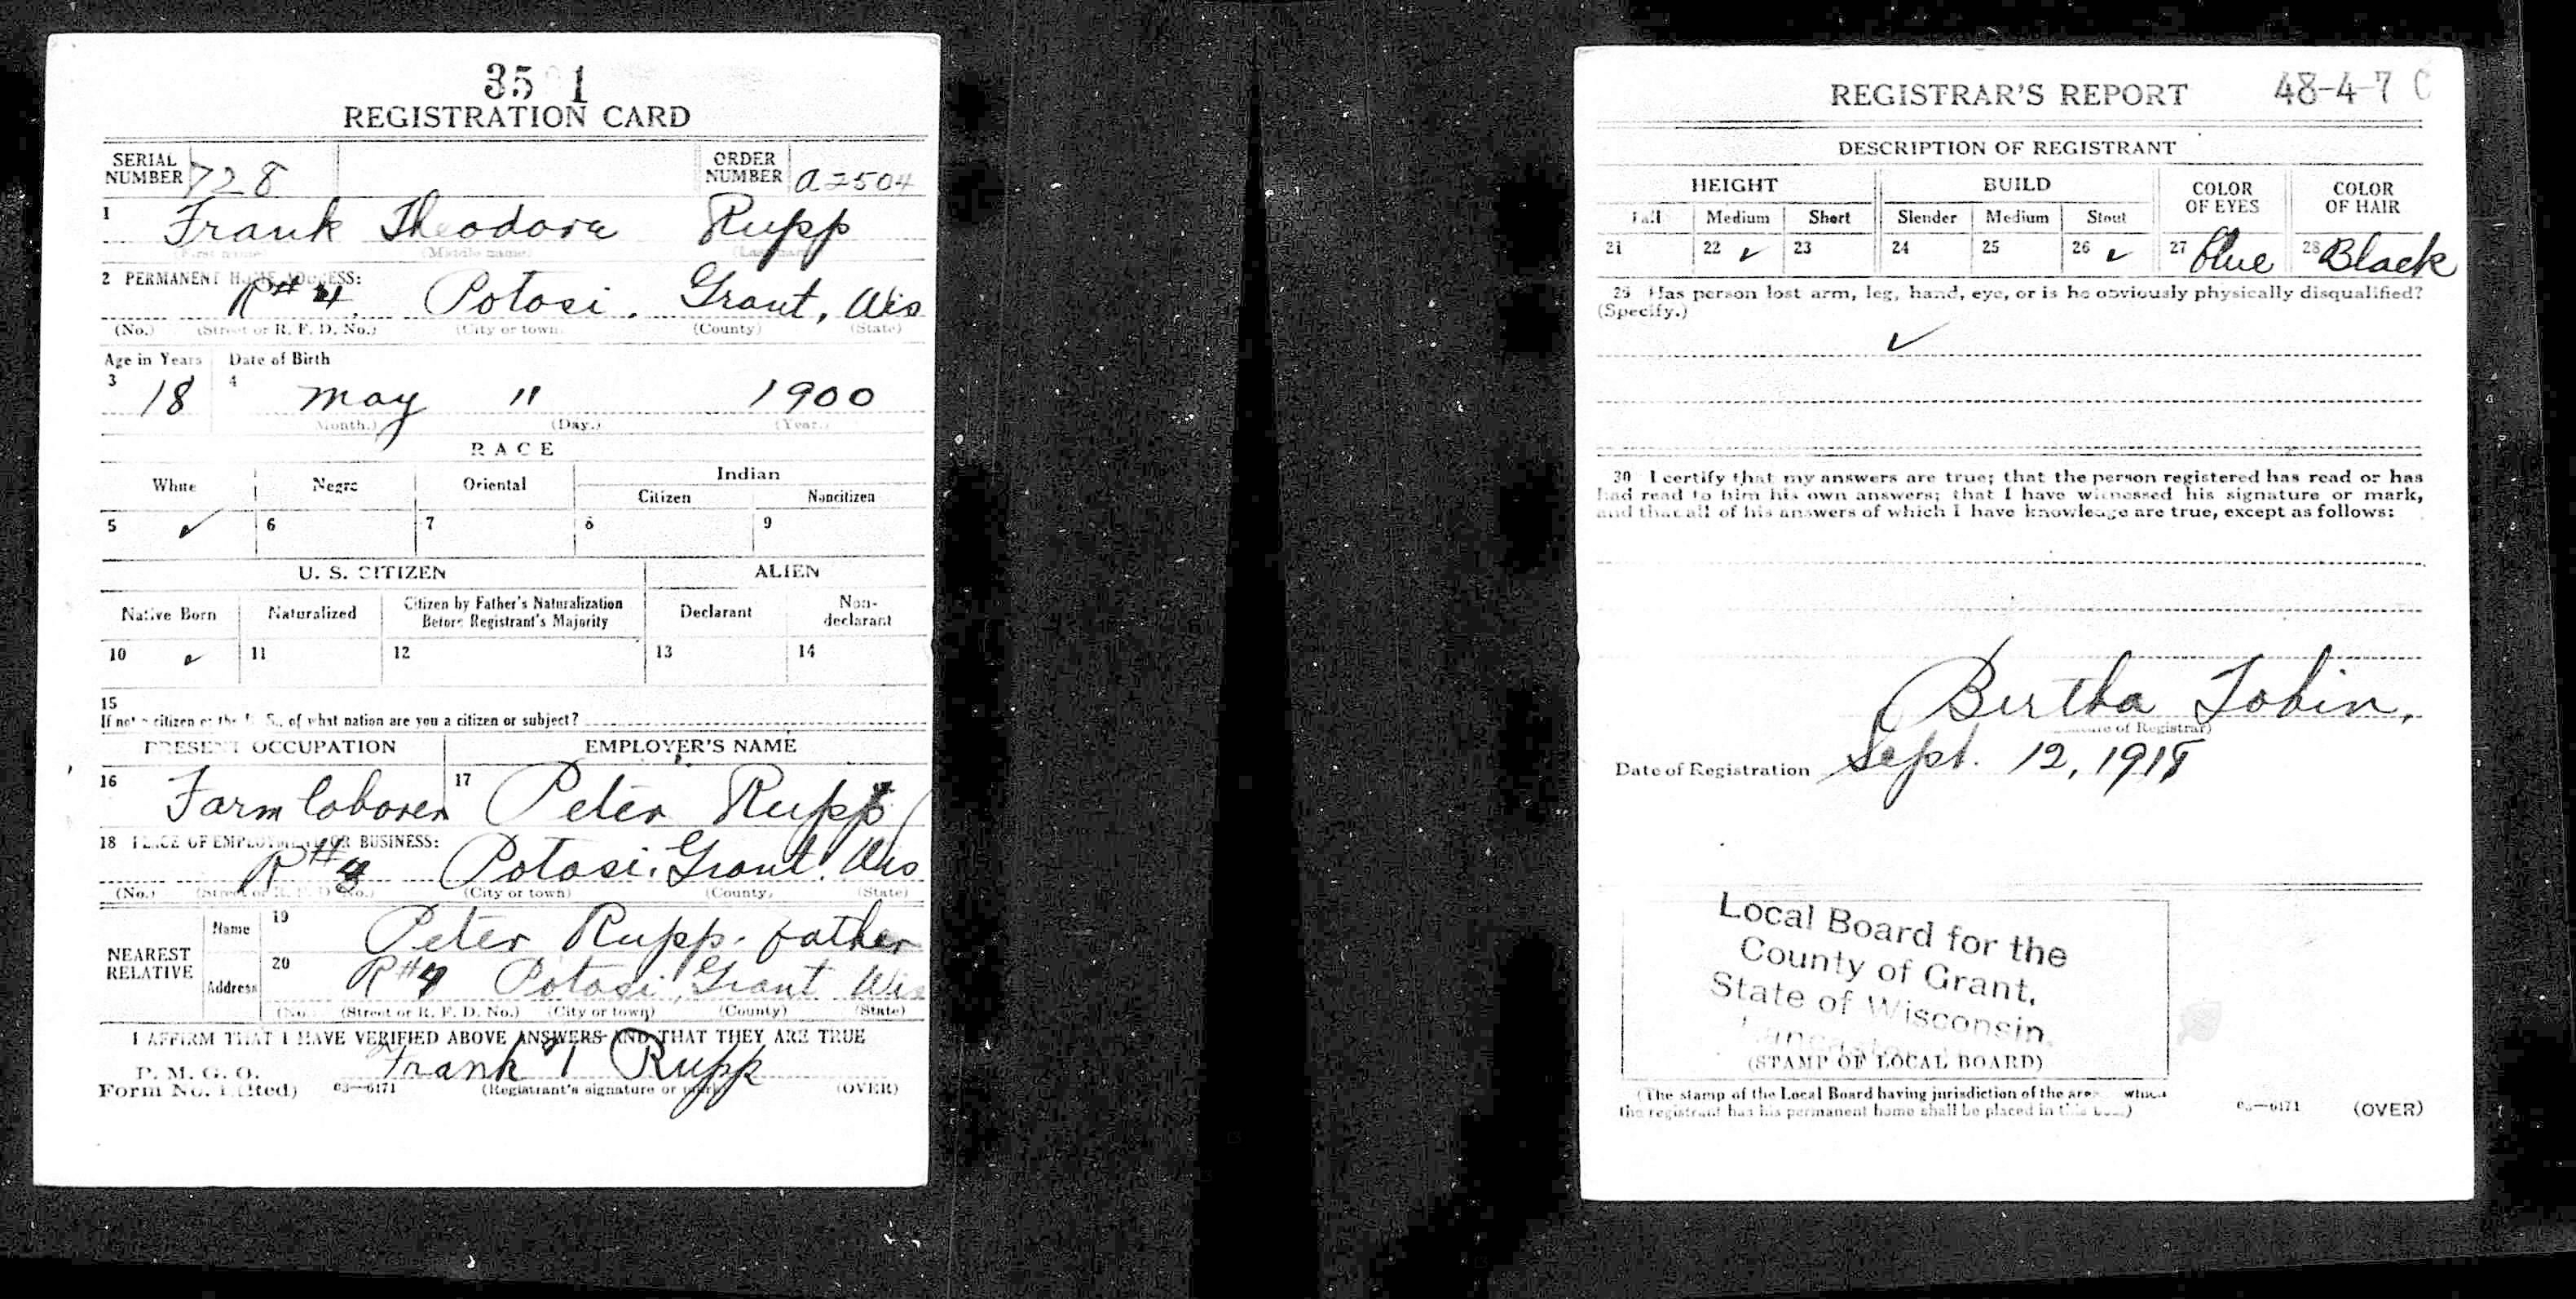 35 1
REGISTRATION CARD
SERIAL NUMBER 728 ORDER NUMBER A2504
1 Frank Theodore Rupp
(First name) (Middle name) (Last name)
2 PERMANENT HOME ADDRESS:
R#4. Potosi, Grant, Wis
(No.) (Street or R. F. D. No.) (City or town) (County) (State)
Age in Years Date of Birth
3 18 4 May 11 1900
(Month.) (Day.) (Year.)
RACE
White Negro Oriental Indian
Citizen Noncitizen
5 ✓ 6 7 8 9
U. S. CITIZEN ALIEN
Native Born Naturalized Citizen by Father's Naturalization Before Registrant's Majority Declarant Non-declarant
10 ✓ 11 12 13 14
15
If not a citizen of the U. S., of what nation are you a citizen or subject?
PRESENT OCCUPATION EMPLOYER'S NAME
16 Farm laborer 17 Peter Rupp
18 PLACE OF EMPLOYMENT OR BUSINESS:
R# Potosi, Grant, Wis
(No.) (Street or R. F. D. No.) (City or town) (County) (State)
NEAREST RELATIVE
Name 19 Peter Rupp - father
Address 20 R#4 Potosi, Grant Wis
(No.) (Street or R. F. D. No.) (City or town) (County) (State)
I AFFIRM THAT I HAVE VERIFIED ABOVE ANSWERS AND THAT THEY ARE TRUE
Frank T Rupp
P. M. G. O.
Form No. 1 (Red) 03—6171 (Registrant's signature or mark) (OVER)
REGISTRAR'S REPORT 48-4-7 C
DESCRIPTION OF REGISTRANT
HEIGHT BUILD COLOR OF EYES COLOR OF HAIR
Tall Medium Short Slender Medium Stout
21 22 ✓ 23 24 25 26 ✓ 27 Blue 28 Black
29 Has person lost arm, leg, hand, eye, or is he obviously physically disqualified?
(Specify.)
✓
30 I certify that my answers are true; that the person registered has read or has
had read to him his own answers; that I have witnessed his signature or mark,
and that all of his answers of which I have knowledge are true, except as follows:
Bertha Tobin.
(Signature of Registrar)
Date of Registration Sept. 12, 1918
Local Board for the
County of Grant,
State of Wisconsin.
(STAMP OF LOCAL BOARD)
(The stamp of the Local Board having jurisdiction of the area which
the registrant has his permanent home shall be placed in this box.)
03—6171 (OVER)